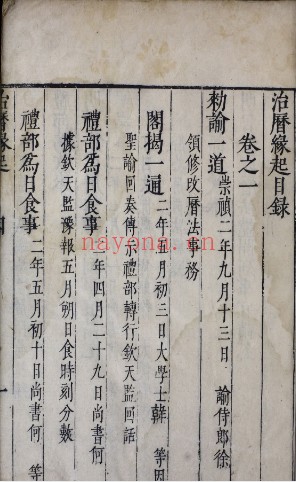 治曆緣起目錄
卷之一
勅諭一道 崇禎二年九月十三日 諭侍郎徐
領修改曆法事務
閣揭一通 二年五月初三日大學士韓 等因
聖諭回奏傳示禮部轉行欽天監回話
禮部爲日食事 二年四月二十九日尚書何
據欽天監豫報五月朔日食時刻分數
禮部爲日食事 二年五月初十日尚書何 等
治曆緣起
nayona.cn